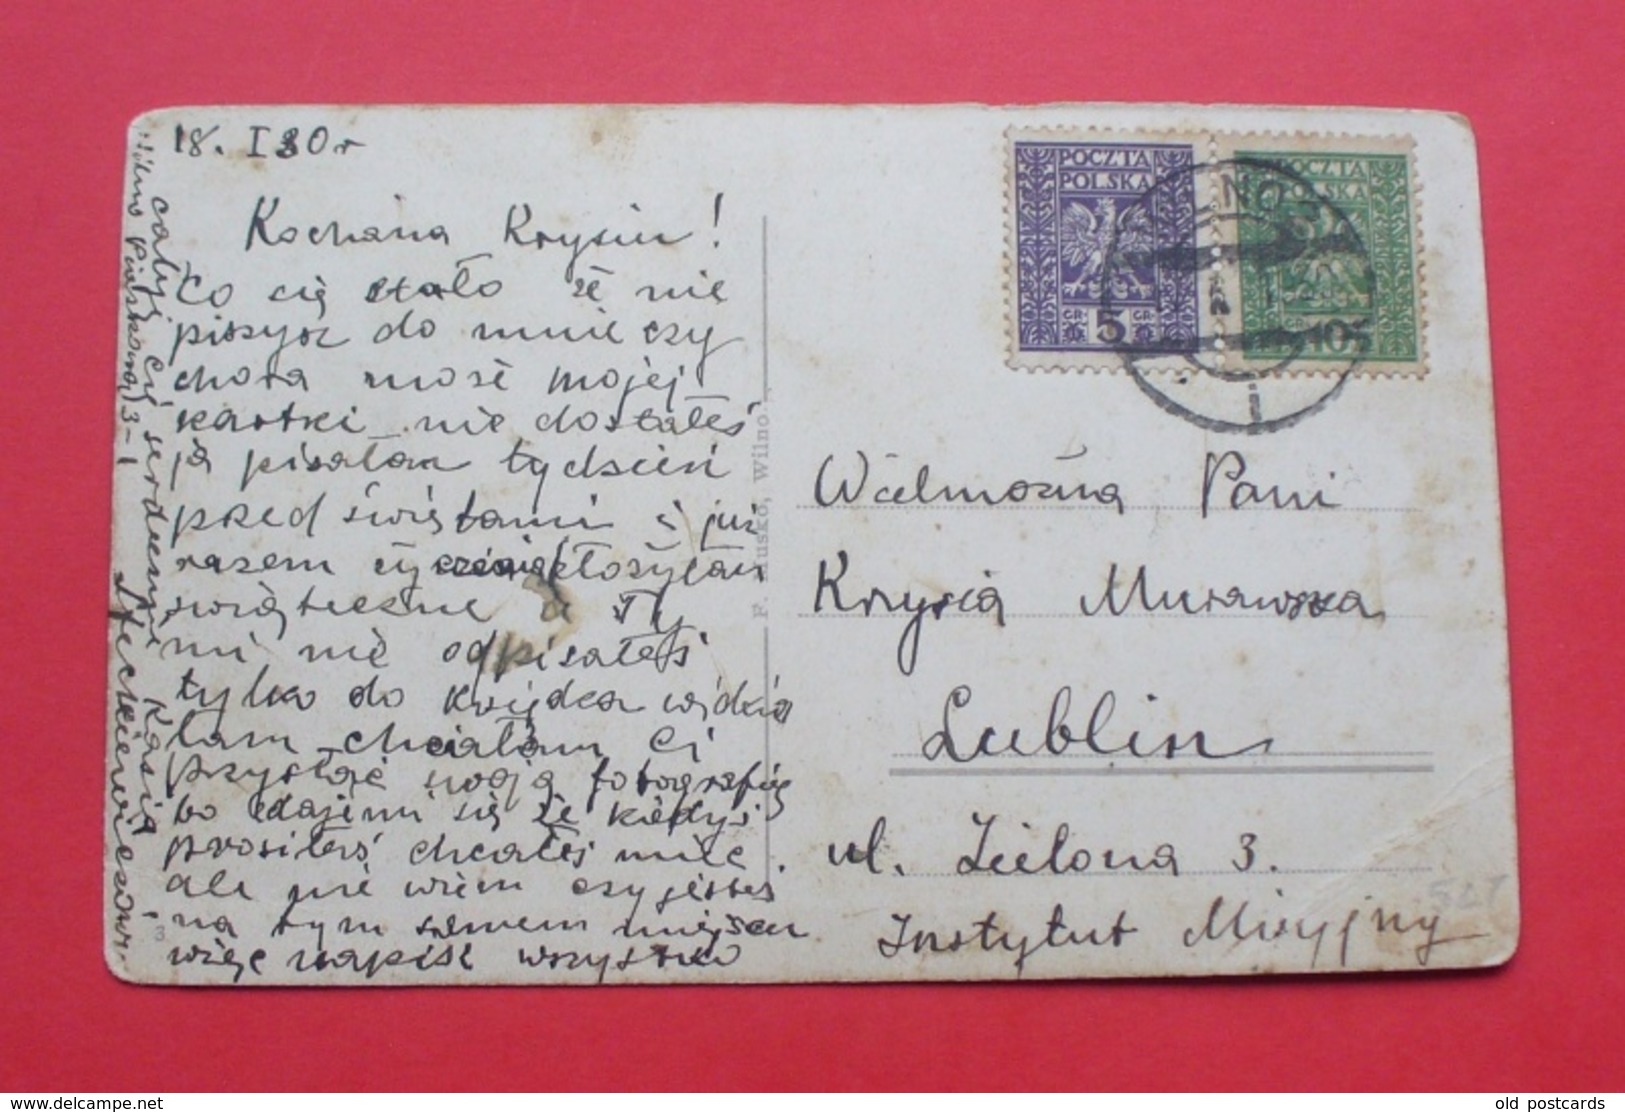 18. I 30 r
Kochana Krysiu!
Co cię stało że nie
piszysz do mnie czy
chora może mojej
kartki nie dostałeś
ja pisałam tydzień
przed świętami i już
razem życzenia złożyłam
świąteczne a Ty
mi nie odpisałeś
tylko do księdza widzia
łam chciałam Ci
przysłać swoją fotografię
bo zdaje mi się że kiedyś
prosiłeś chcałeś mieć.
ale nie wiem czy jesteś
na tym samem miejscu
więc napisz wszystko
całuję cię serdecznie Kasia
Wilno Piaskowa 3-1
POCZTA
POLSKA
GR. 5 GR.
POCZTA
POLSKA
GR. 10
WILNO
F. Łusko, Wilno
Wielmożna Pani
Krysia Murawska
Lublin
ul. Zielona 3.
Instytut Misyjny
3
www.delcampe.net
old postcards